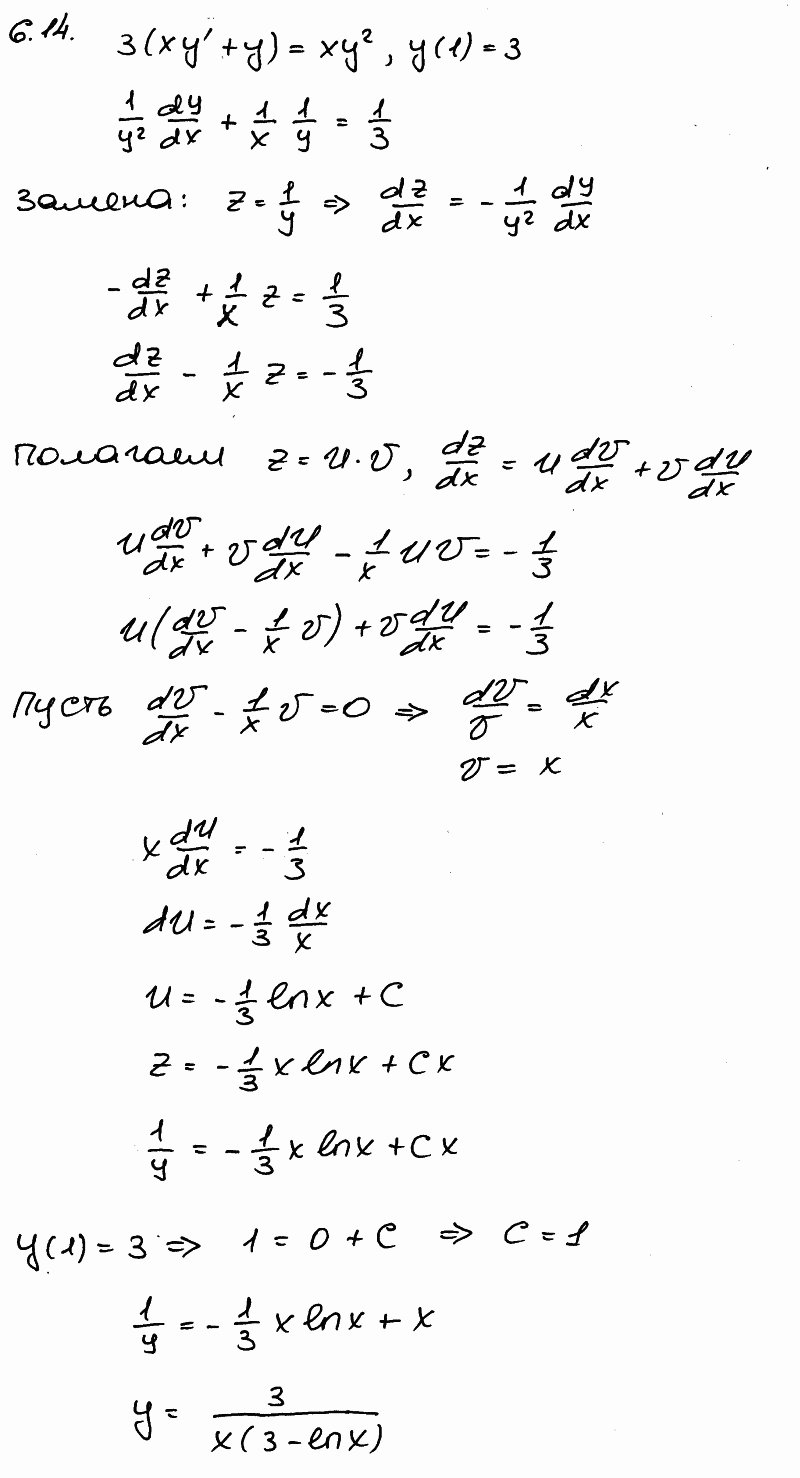 6.14. 3(xy' + y) = xy², y(1) = 3
1/y² dy/dx + 1/x 1/y = 1/3
Замена: z = 1/y ⇒ dz/dx = - 1/y² dy/dx
- dz/dx + 1/x z = 1/3
dz/dx - 1/x z = - 1/3
Полагаем z = u·v, dz/dx = u dv/dx + v du/dx
u dv/dx + v du/dx - 1/x uv = - 1/3
u(dv/dx - 1/x v) + v du/dx = - 1/3
Пусть dv/dx - 1/x v = 0 ⇒ dv/v = dx/x
v = x
x du/dx = - 1/3
du = - 1/3 dx/x
u = - 1/3 ln x + C
z = - 1/3 x ln x + Cx
1/y = - 1/3 x ln x + Cx
y(1) = 3 ⇒ 1 = 0 + C ⇒ C = 1
1/y = - 1/3 x ln x + x
y = 3/(x(3 - ln x))